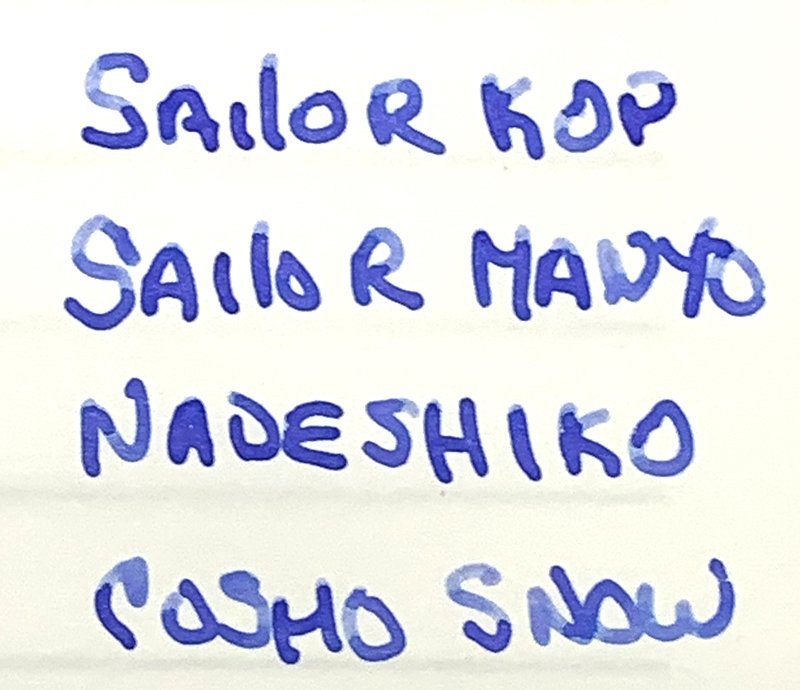 SAILOR KOP
SAILOR MANYO
NADESHIKO
COSMO SNOW